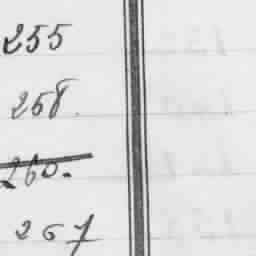 255
258.
260.
267